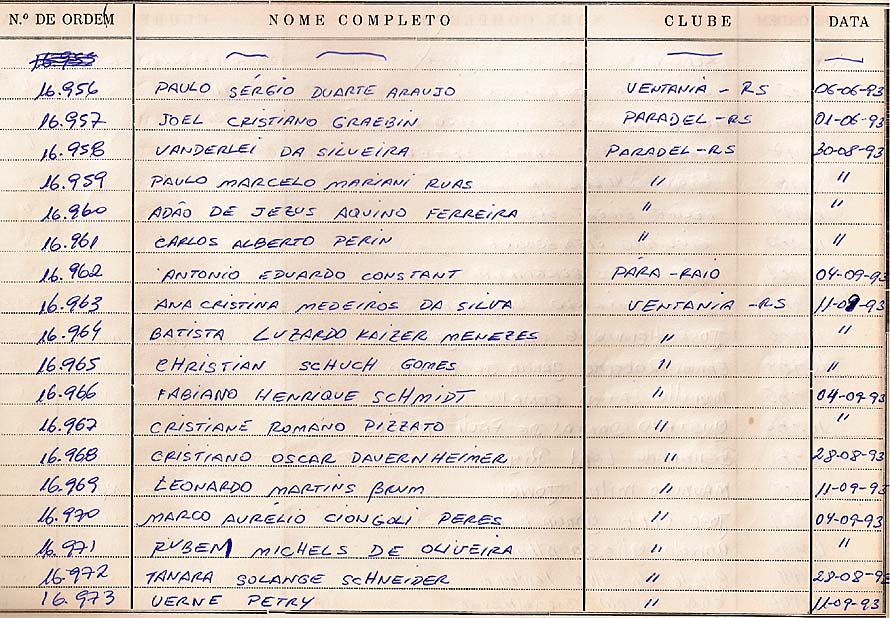 N.º DE ORDEM NOME COMPLETO CLUBE DATA
16.955
16.956 PAULO SÉRGIO DUARTE ARAUJO VENTANIA - RS 06-06-93
16.957 JOEL CRISTIANO GRAEBIN PARADEL - RS 01-06-93
16.958 VANDERLEI DA SILVEIRA PARADEL - RS 30-08-93
16.959 PAULO MARCELO MARIANI RUAS " "
16.960 ADÃO DE JEZUS AQUINO FERREIRA " "
16.961 CARLOS ALBERTO PERIN " "
16.962 ANTONIO EDUARDO CONSTANT PÁRA - RAIO 04-09-93
16.963 ANA CRISTINA MEDEIROS DA SILVA VENTANIA - RS 11-09-93
16.964 BATISTA LUZARDO KAIZER MENEZES " "
16.965 CHRISTIAN SCHUCH GOMES " "
16.966 FABIANO HENRIQUE SCHMIDT " 04-09-93
16.967 CRISTIANE ROMANO PIZZATO " "
16.968 CRISTIANO OSCAR DAVERNHEIMER " 28-08-93
16.969 LEONARDO MARTINS BRUM " 11-09-93
16.970 MARCO AURÉLIO CIONGOLI PERES " 04-09-93
16.971 RUBEM MICHELS DE OLIVEIRA " "
16.972 TANARA SOLANGE SCHNEIDER " 28-08-93
16.973 VERNE PETRY " 11-09-93